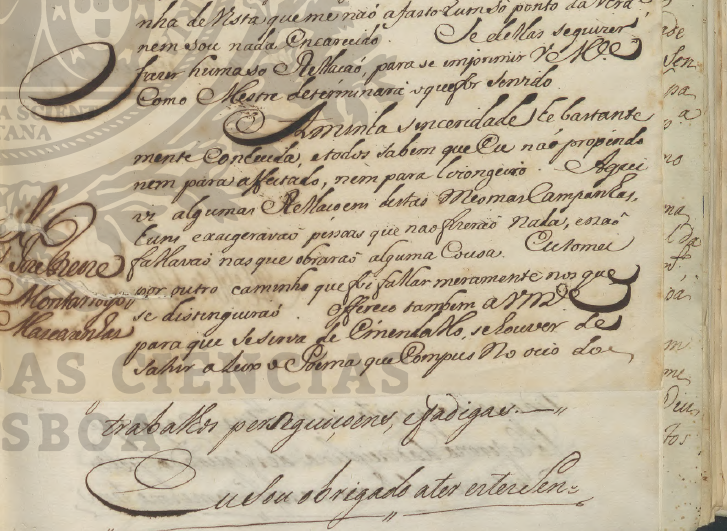 nha de Vista que me não afasto hum só ponto da verda
nem sou nada encarecido. Se dellas se quizer
fazer huma só Rellação, para se imprimir V. M.ce
Como Mestre determinará o que for servido.
A minha sinceridade he bastante
mente Conhecida, e todos sabem que Eu não propendo
nem para affectado, nem para lizongeiro. Aqui
vi algumas Rellacoens destas Mesmas Campanhas,
huns exageravão pessoas que não fizerão Nada, e não
fallavão nas que obrarão alguma Couza. Eu tomei
por outro caminho que foi fallar meramente nos que
se distinguirão. Offereço tambem a V. M.ce
para que se sirva de Emendallo, se houver de
sahir a luz o Poema que Compus No ocio dos
José Freire
Montarroyo
Mascarenhas
trabalhos perseguiçoens, e fadigas.
Eu sou obrigado a ter este Sen=
AS CIENCIAS
SBOA
A SCIENTI
TANA